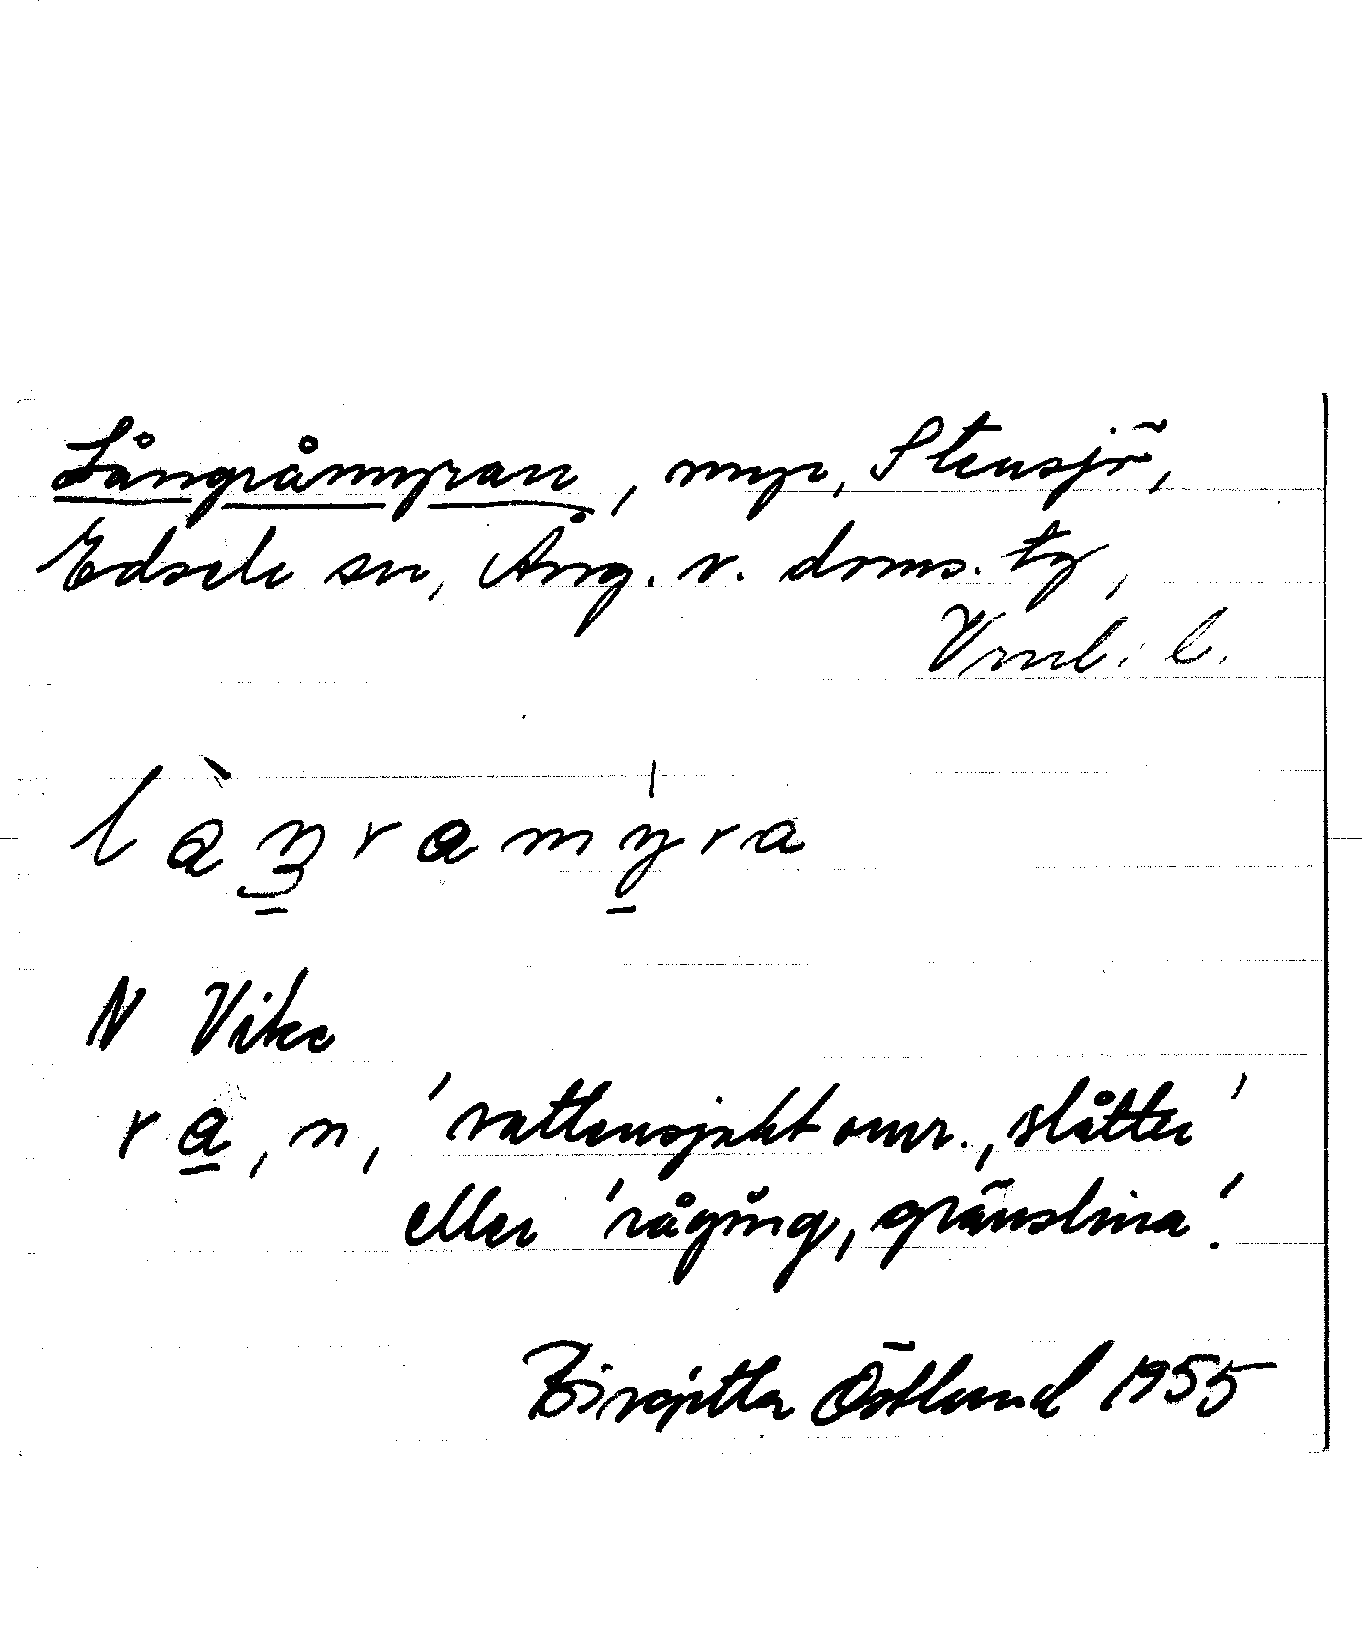 Långråmyran, myr, Stensjö,
Edsele sn, Ång. v. doms. tg,
Vrnl. l.
làŋramyra
N Vike
ra, n, 'vattensjukt omr., slåtter'
eller 'rågång, gränslinia'.
Birgitta Östlund 1955